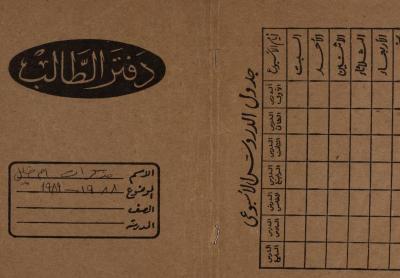 دفتر الطالب
الاسم
الموضوع ١٩٨٨ - ١٩٨٩
الصف
المدرسة
جدول الدروس الأسبوعي
أيام الأسبوع
السبت
الأحد
الاثنين
الثلاثاء
الأربعاء
الدرس الأول
الدرس الثاني
الدرس الثالث
الدرس الرابع
الدرس الخامس
الدرس السادس
الدرس السابع